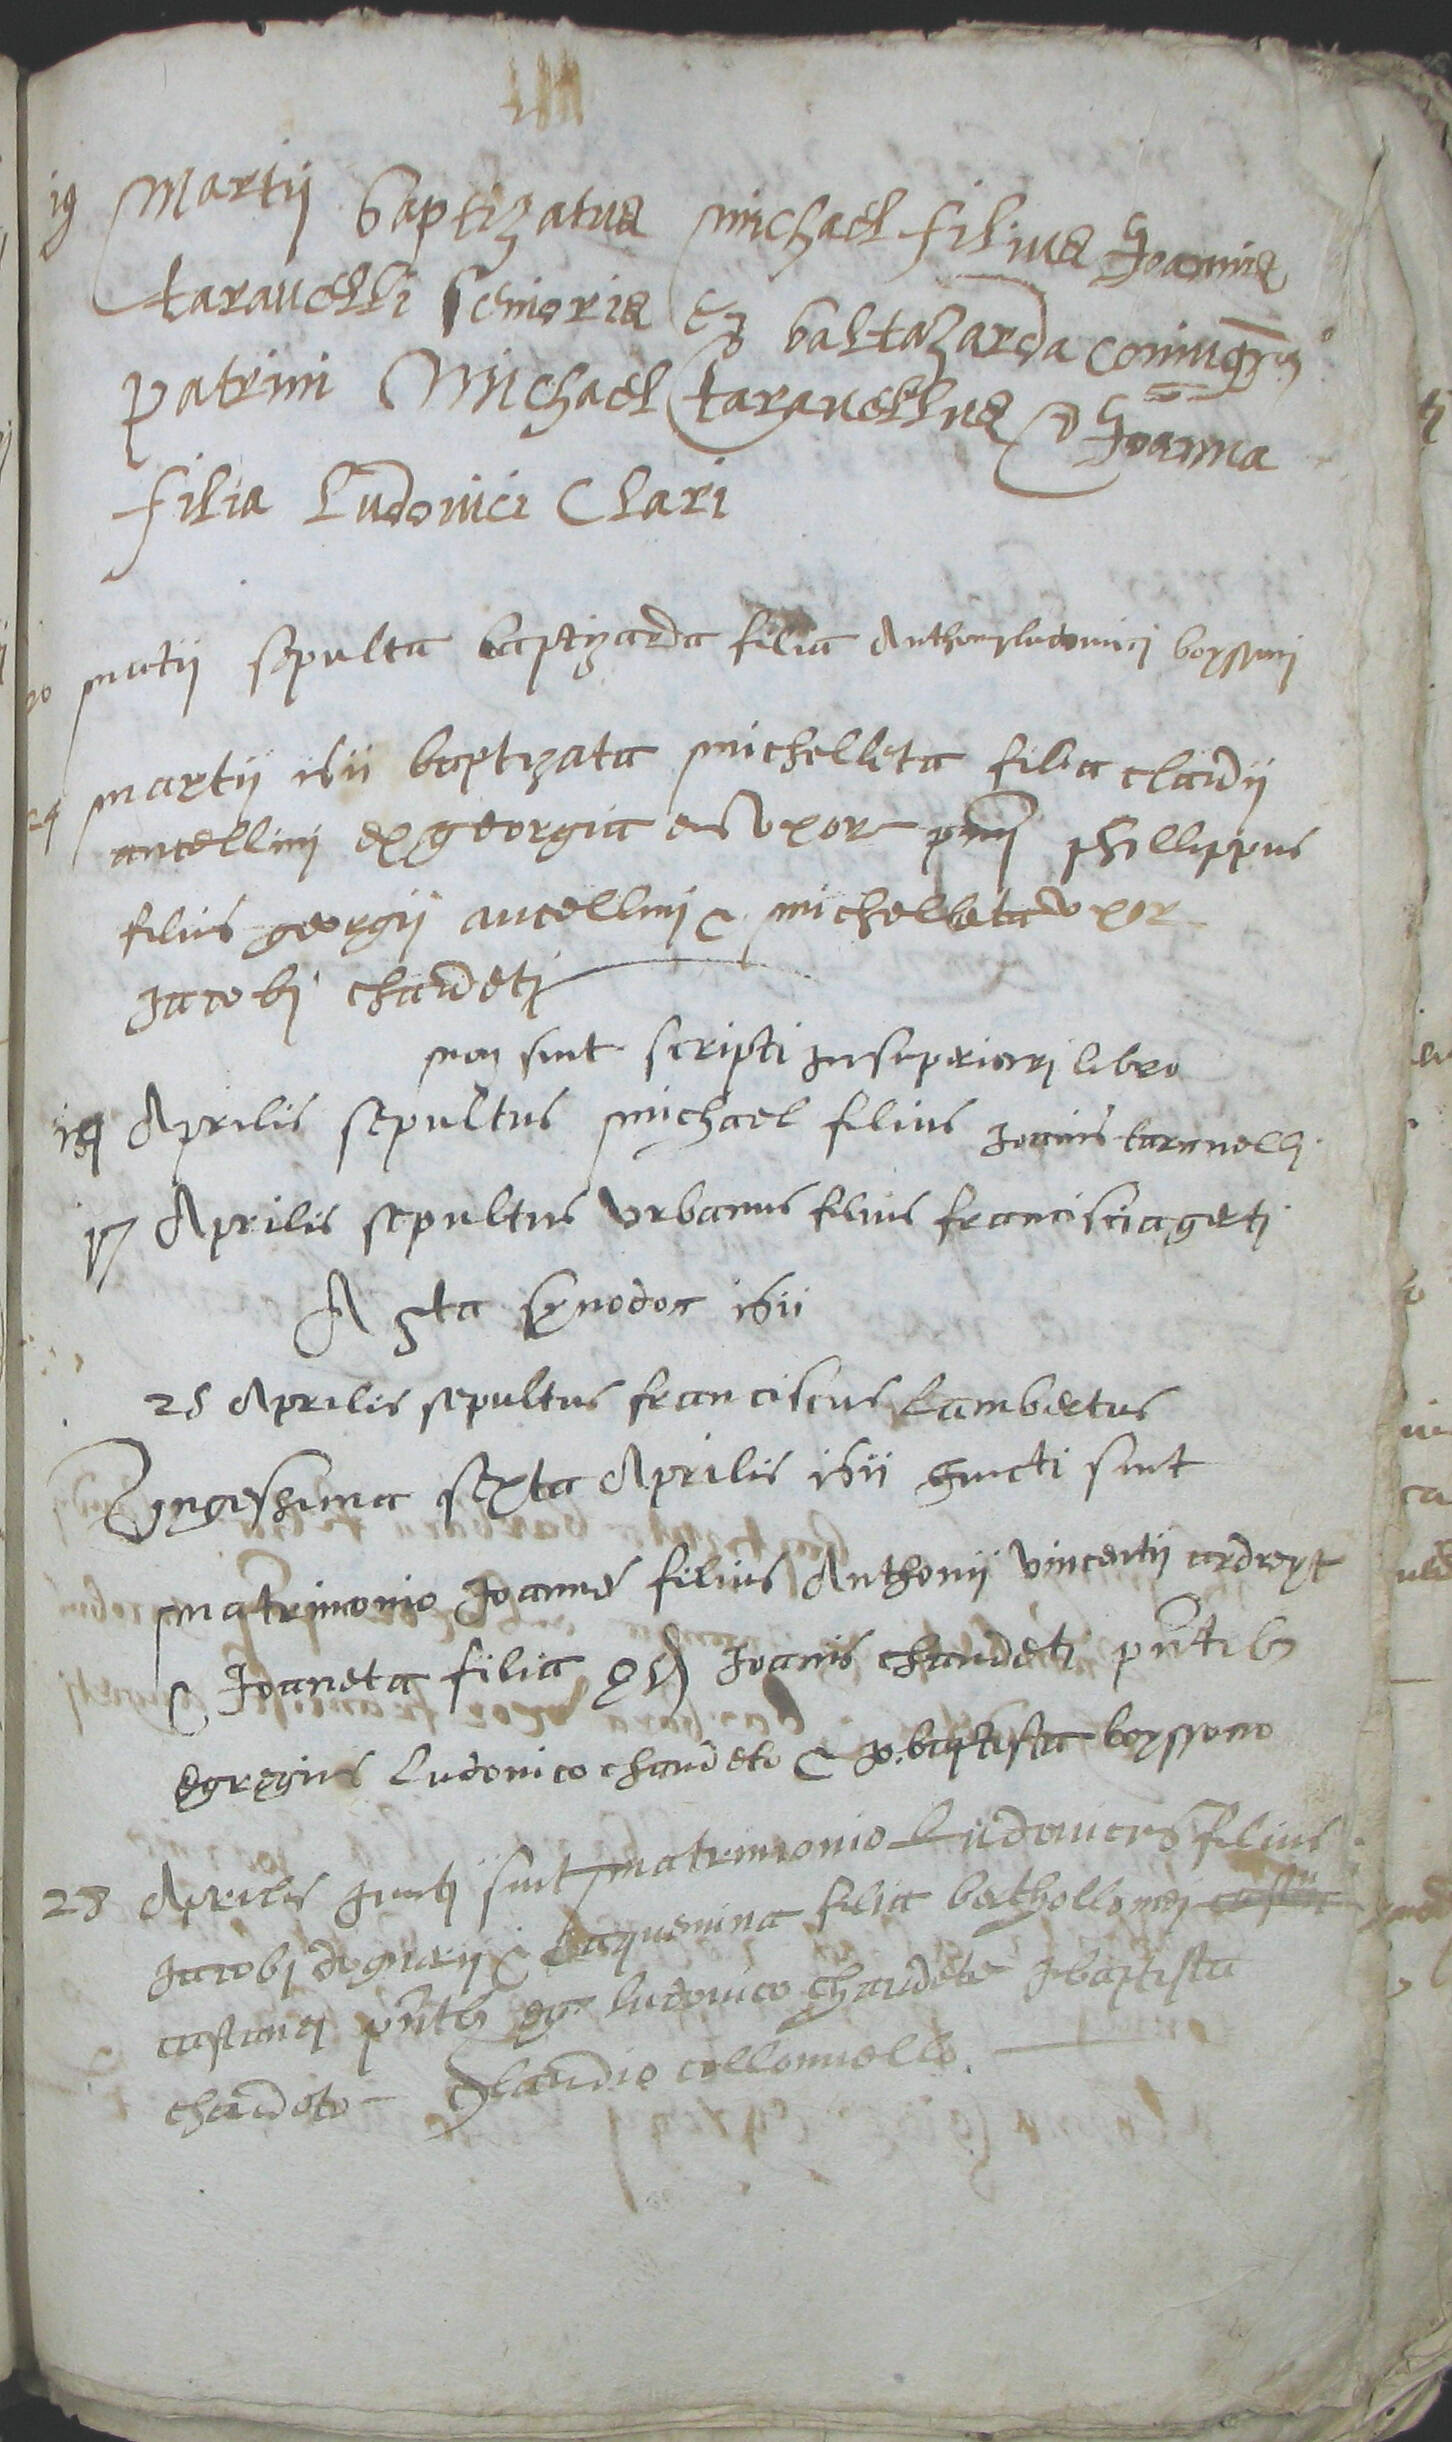 19 Martij baptizatus michael filius Joannis
taravelli senioris et baltazarda
patrini Michael taravellus et Joanna
filia Ludovici Clari
20 martij sepulta baptizarda filia Anthonij ludovici boyssoni
24 martij 1611 baptizata michelleta filia claudij
ancellini ex georgia eius uxor phillippus
filius georgij ancellini & michelleta uxor
jacobi chaudeti
non sunt scripti in superiori libro
Aprilis sepultus michael filius joanis taravelli
17 Aprilis sepultus Urbanus filius francisci ageti
Acta synodo 1611
28 Aprilis sepultus franciscus Lambertus
Vigessima sexta Aprilis 1611 juncti sunt
matrimonio joannes filius Anthonij vincentij
& joaneta filia qd joanis chaudeti pntib
egregius Ludovico chaudeto & baptista boyssono
28 Aprilis juncti sunt matrimonio Ludovicus filius
jacobi & jaquemina filia bathollomei
castanei pntib eg ludovico chaudeto baptista
chaudeto claudio collonnello.